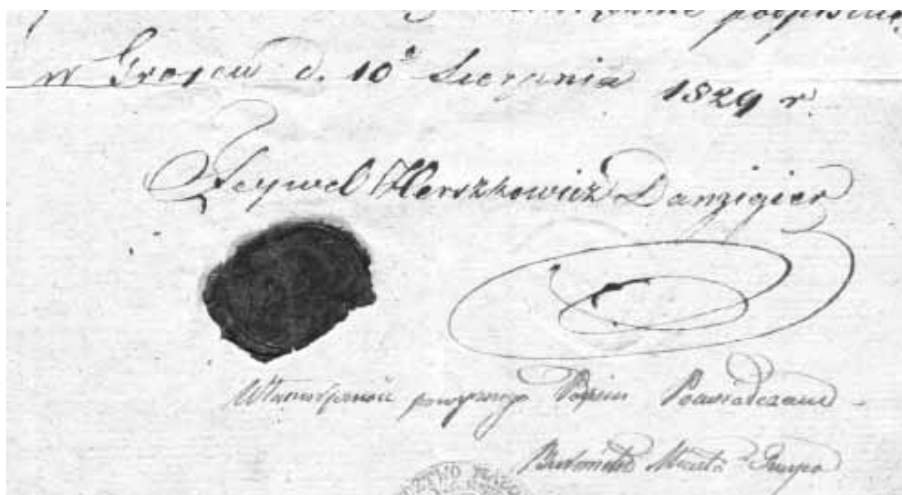 podpisuię
w Grojcu d. 10° Sierpnia 1829 r.
Feywel Herszkowicz Danzigier
Własnoręczność powyższego Podpisu Poswiadczam
Burmistrz Miasta Grojca